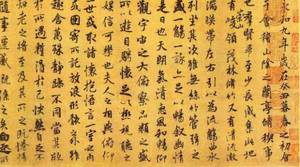 和九年歲在癸丑暮春之初
稽山陰之蘭亭脩禊事
賢畢至少長咸集此
峻領茂林脩竹又有清流
湍映帶左右引以為流觴曲
列坐其次雖無絲竹管弦
盛一觴一詠亦足以暢敘幽
是日也天朗氣清惠風和
觀宇宙之大俯察品類之盛
以遊目騁懷足以極視聽
信可樂也夫人之相與俯仰
世或取諸懷抱悟言一室之內
或因寄所託放浪形骸之外
趣舍萬殊靜躁不同當其欣
於所遇暫得於己快然自足
老之將至及其所之既惓
隨事遷感慨係之矣向之